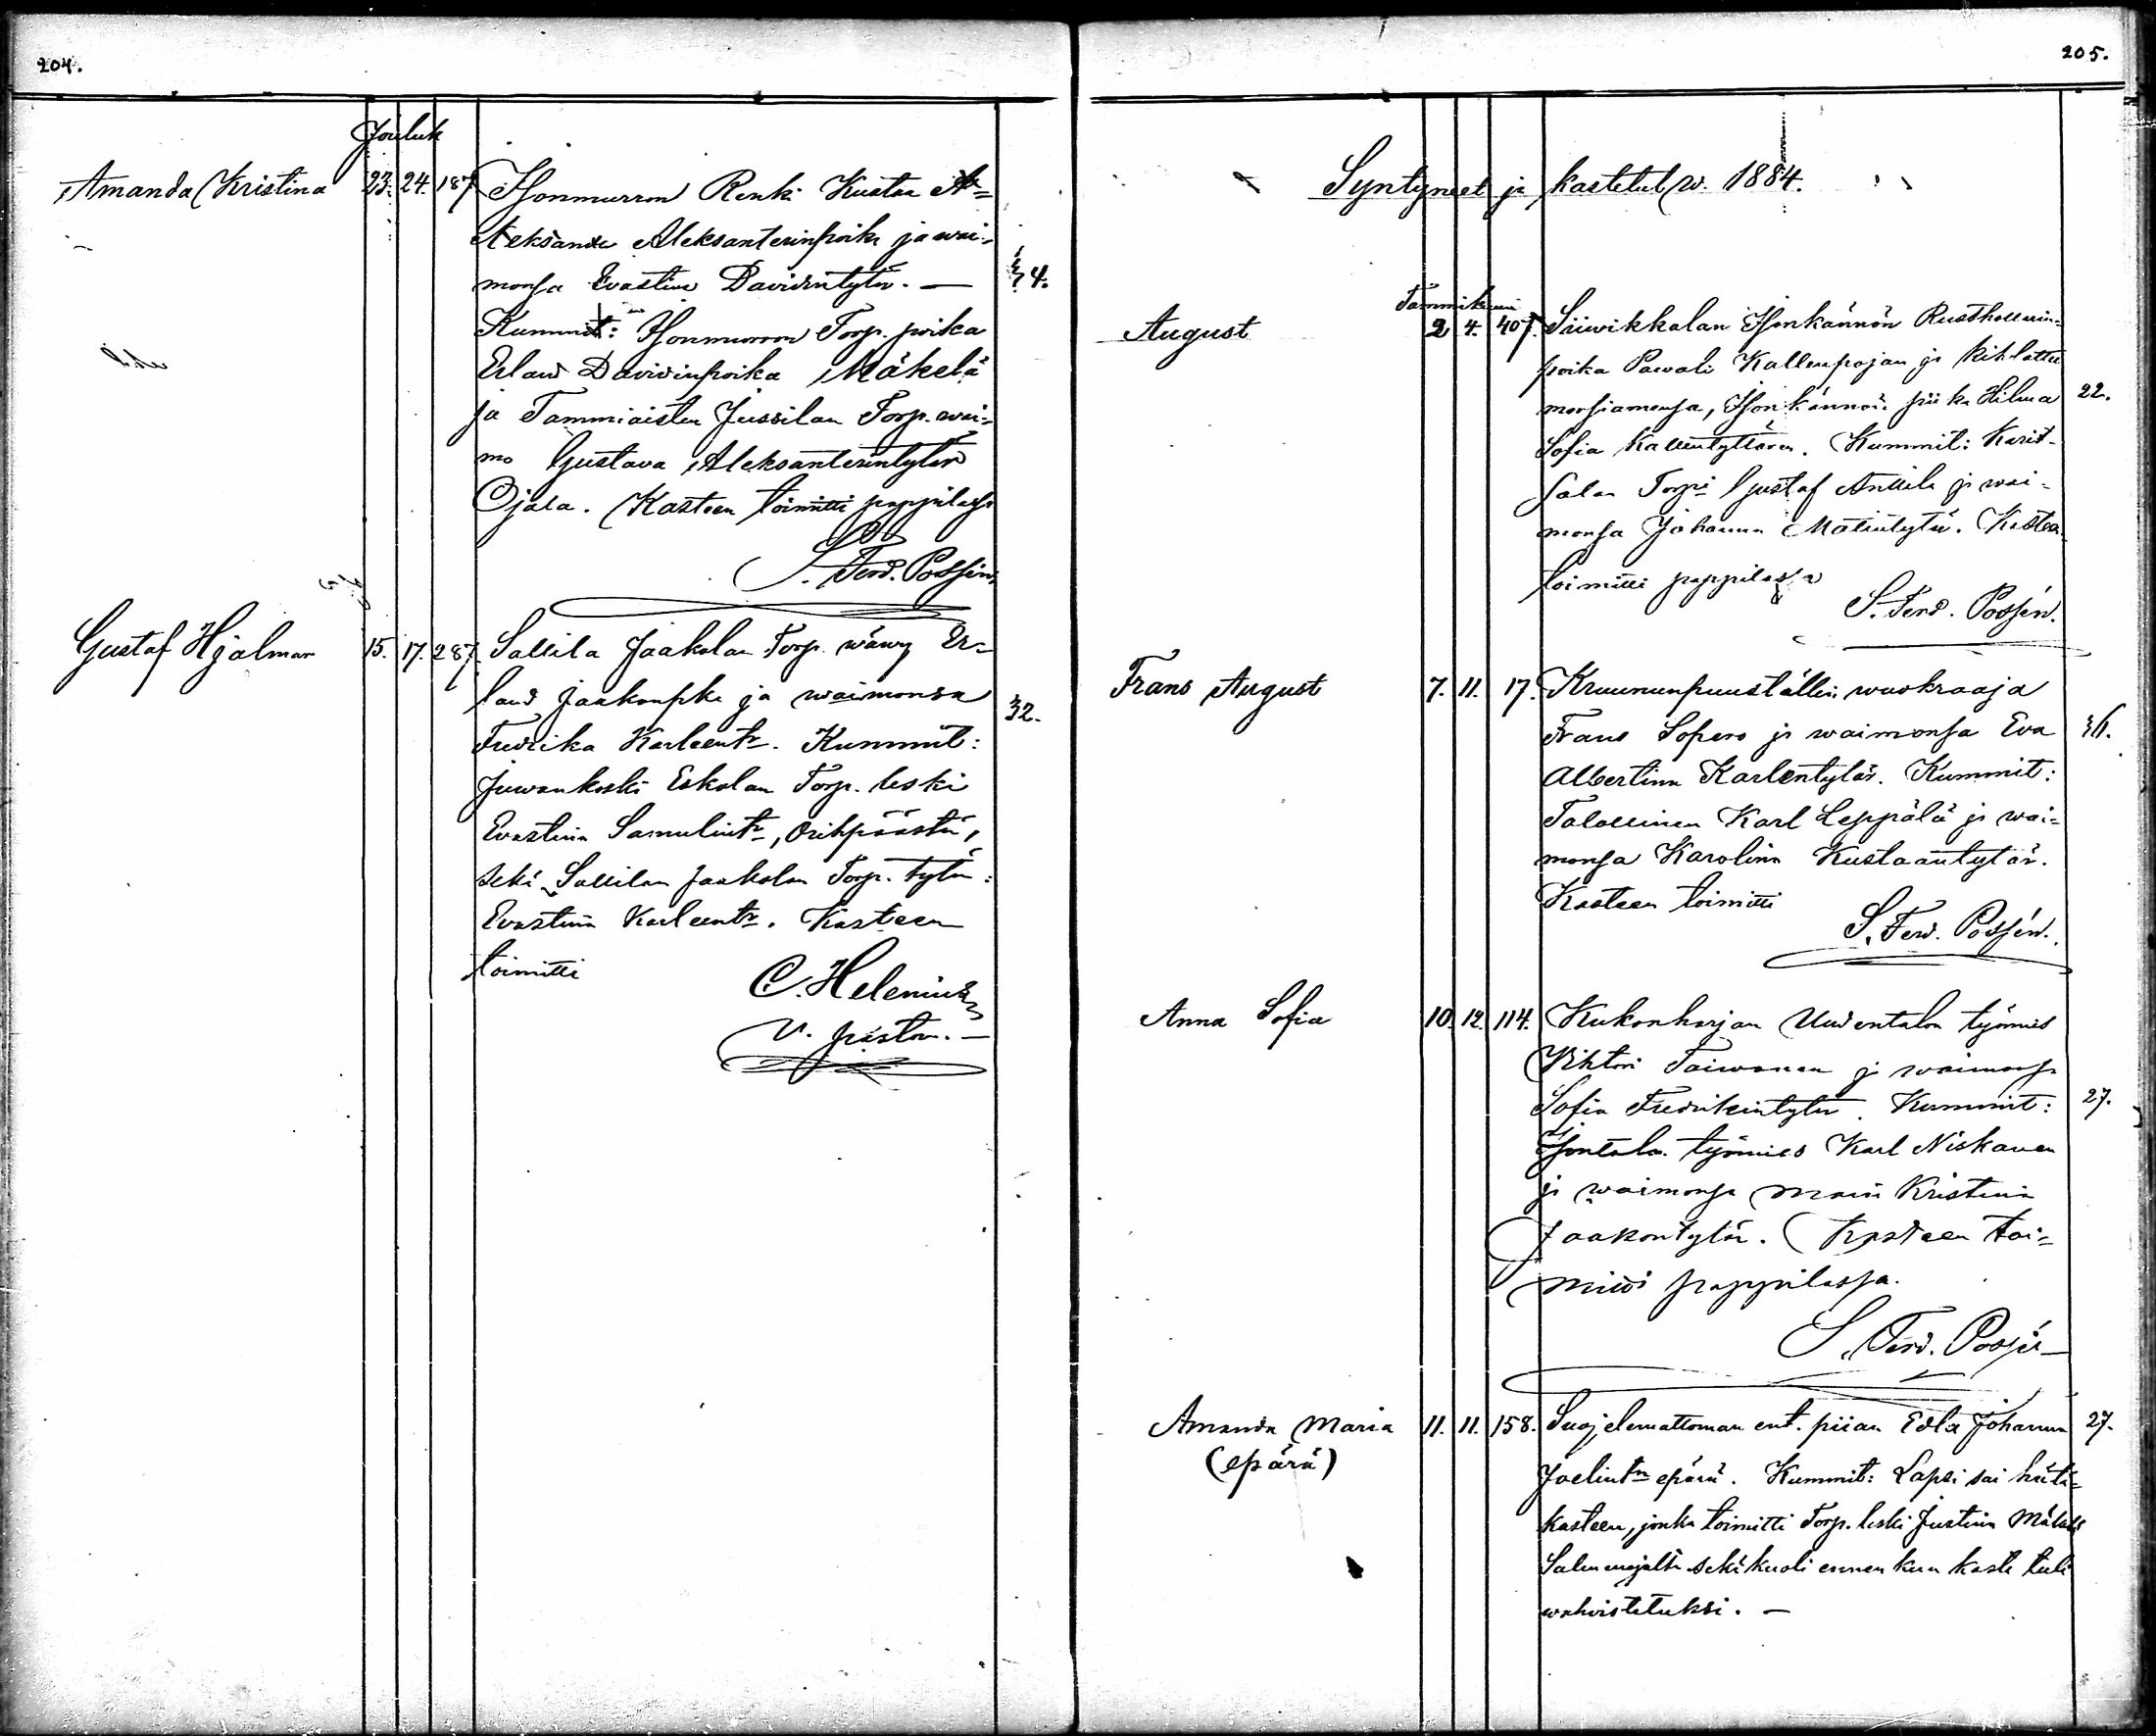 204.
Jouluk
Amanda Kristina 23. 24. 187 Isonmurron Renki Kustaa A=
Aleksanter Aleksanterinpoika ja wai=
monsa Evastiina Davidintytär. — 34.
Kummit: Isonmurron Torp. poika
Erland Davidinpoika Mäkelä
ja Tammiaisten Jussilan Torp. wai=
mo Gustava Aleksanterintytär
Ojala. Kasteen toimitti pappilassa
S. Ferd. Possén.
Gustaf Hjalmar 15. 17. 287. Sallila Jaakolan Torp. wäwy Er=
land Jaakonpka ja waimonsa 32.
Fredrika Karleentr. Kummit:
Juwankoski Eskolan Torp. leski
Evastiina Samulintr, Orihpäästä,
sekä Sallilan Jaakolan Torp. tytär:
Evastiina Karleentr. Kasteen
toimitti
C. Helenius
V. pastori. —
205.
Syntyneet ja kastetut w. 1884.
Tammikuu
August 2 4. 407. Isonkännön Rusthollarin=
poika Pawali Kallenpojan ja kihlattu
morsiamensa, Isonkännön piika Hilma 22.
Sofia Kallentyttären. Kummit: Karit=
salan Torp. Gustaf Anttila ja wai=
monsa Johanna Matintytär. Kasteen
toimitti pappilassa
S. Ferd. Possén.
Frans August 7. 11. 17. Kruununpuuställin wuokraaja
Frans Sopero ja waimonsa Eva 36.
Albertina Karlentytär. Kummit:
Talollinen Karl Leppälä ja wai=
monsa Karolina Kustaantytär.
Kasteen toimitti
S. Ferd. Possén.
Anna Sofia 10. 12. 114. Kukonharjan Uudentalon työmies
Vihtori Taiwonen ja waimonsa
Sofia Fredrikintytär. Kummit: 27.
Isontalon työmies Karl Niskanen
ja waimonsa Maria Kristiina
Jaakontytär. Kasteen toi=
mitti pappilassa.
S. Ferd. Possén
Amanda Maria 11. 11. 158. Suojelemattoman ent. piian Edla Johanna 27.
(epärä) Joelintr epärä. Kummit: Lapsi sai hätä=
kasteen, jonka toimitti Torp. leski Justiina Mäkelä
sekä kuoli ennen kun kaste tuli
wahvistetuksi. —